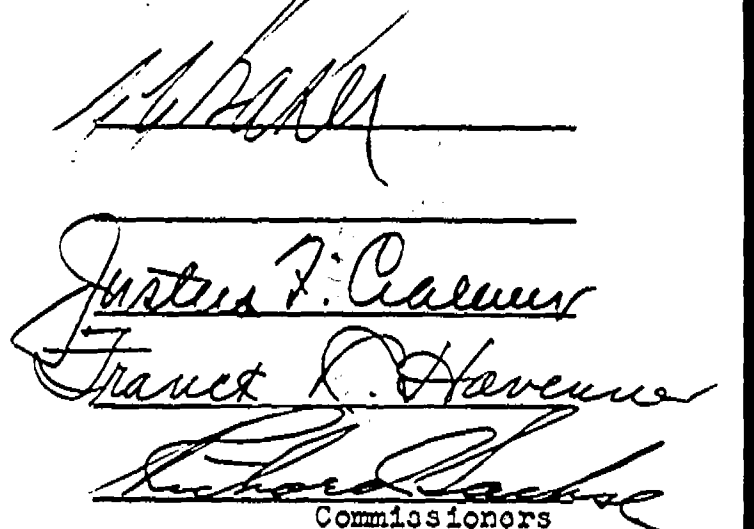 Baker
Justus F. Craemer
Franck R. Havenner
Richard Sachse
Commissioners